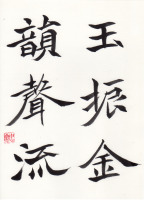 玉振金
韻聲流